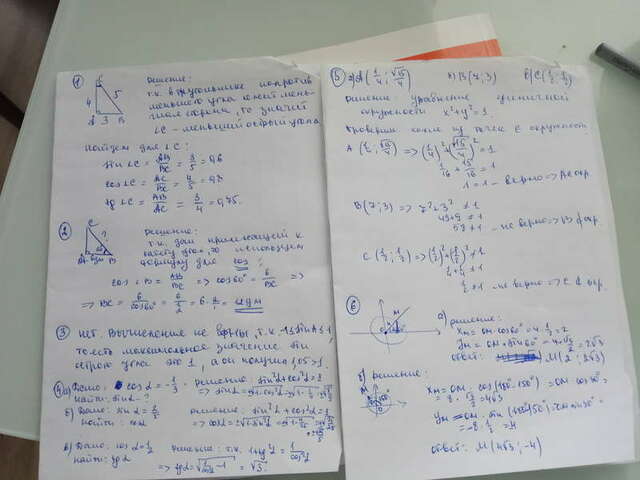 ① Решение:
C
4 5
A 3 B
т.к. в треугольнике напротив
меньшего угла лежит мень-
шая сторона, то значит
∠C - меньший острый угол
найдем для ∠C:
sin∠C = AB/BC = 3/5 = 0,6
cos∠C = AC/BC = 4/5 = 0,8
tg∠C = AB/AC = 3/4 = 0,75.
② Решение:
C
?
A 6дм B
т.к. дан прилежащий к
углу, то используем
формулу для cos:
cos∠B = AB/BC => cos60° = 6/BC =>
=> BC = 6/cos60° =
③ Нет. Вычисление не верны, т.к. -1≤sinA≤1
то есть максимальное значение sin
острого угла это 1, а он получил 1,05>1.
④ а) Дано: cosα = -1/3 Решение: sin²α+cos²α=1
найти: sinα-?
б) Дано: Решение: sin²α+cos²α=1
найти: cosα
в) Дано: cosα=1/2 Решение: т.к. 1+tg²α = 1/cos²α
найти: tgα => tgα = √(1/cos²α - 1) = √3.
⑤ а) A(1/4; √15/4) б) B(7;3) в) C(1/2; 1/2)
решение уравнение единичной
окружности x²+y²=1.
Проверим какие из точек ∈ окружности
A (1/4; √15/4) => (1/4)²+(√15/4)²=1
1/16 + 15/16 = 1
1=1 - верно => A ∈ окр.
B(7;3) => 7²+3² ≠ 1
49+9 ≠ 1
58 ≠ 1 - не верно => B ∉ окр.
C (1/2; 1/2) => (1/2)²+(1/2)² ≠ 1
1/4+1/4 ≠ 1
1/2 ≠ 1 - не верно => C ∉ окр.
⑥
M
а) решение:
Xм = OM·cos60° = 4·1/2 = 2
Yм = OM·sin60° = 4·√3/2 = 2√3
ответ: M(2; 2√3)
б) решение:
M
O
Xм = OM·cos(180°-150°) = OM cos30° =
= 8·√3/2 = 4√3
Yм = OM·sin
= -8·1/2 =
ответ: M(4√3; -4)